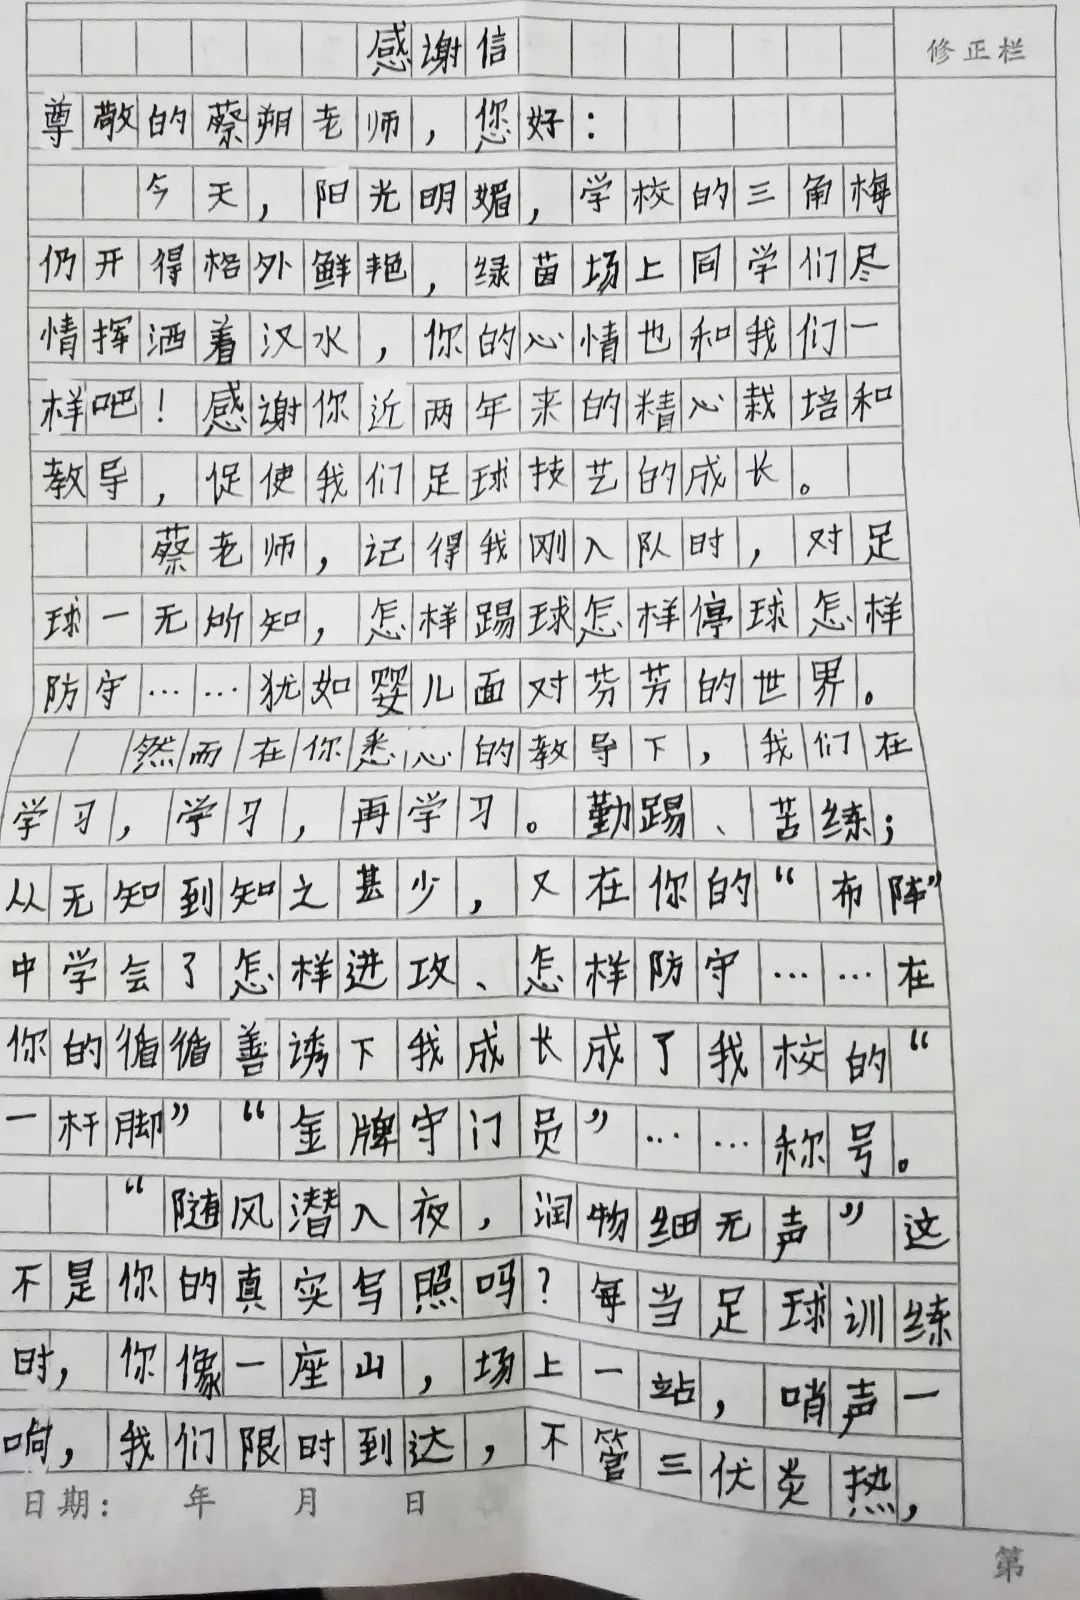 感谢信
修正栏
尊敬的蔡朔老师，您好：
今天，阳光明媚，学校的三角梅
仍开得格外鲜艳，绿茵场上同学们尽
情挥洒着汉水，你的心情也和我们一
样吧！感谢你近两年来的精心栽培和
教导，促使我们足球技艺的成长。
蔡老师，记得我刚入队时，对足
球一无所知，怎样踢球怎样停球怎样
防守……犹如婴儿面对芬芳的世界。
然而在你悉心的教导下，我们在
学习，学习，再学习。勤踢、苦练；
从无知到知之甚少，又在你的“布阵”
中学会了怎样进攻、怎样防守……在
你的循循善诱下我成长成了我校的“
一杆脚”“金牌守门员”……称号。
“随风潜入夜，润物细无声”这
不是你的真实写照吗？每当足球训练
时，你像一座山，场上一站，哨声一
响，我们限时到达，不管三伏炎热，
日期：　年　月　日
第